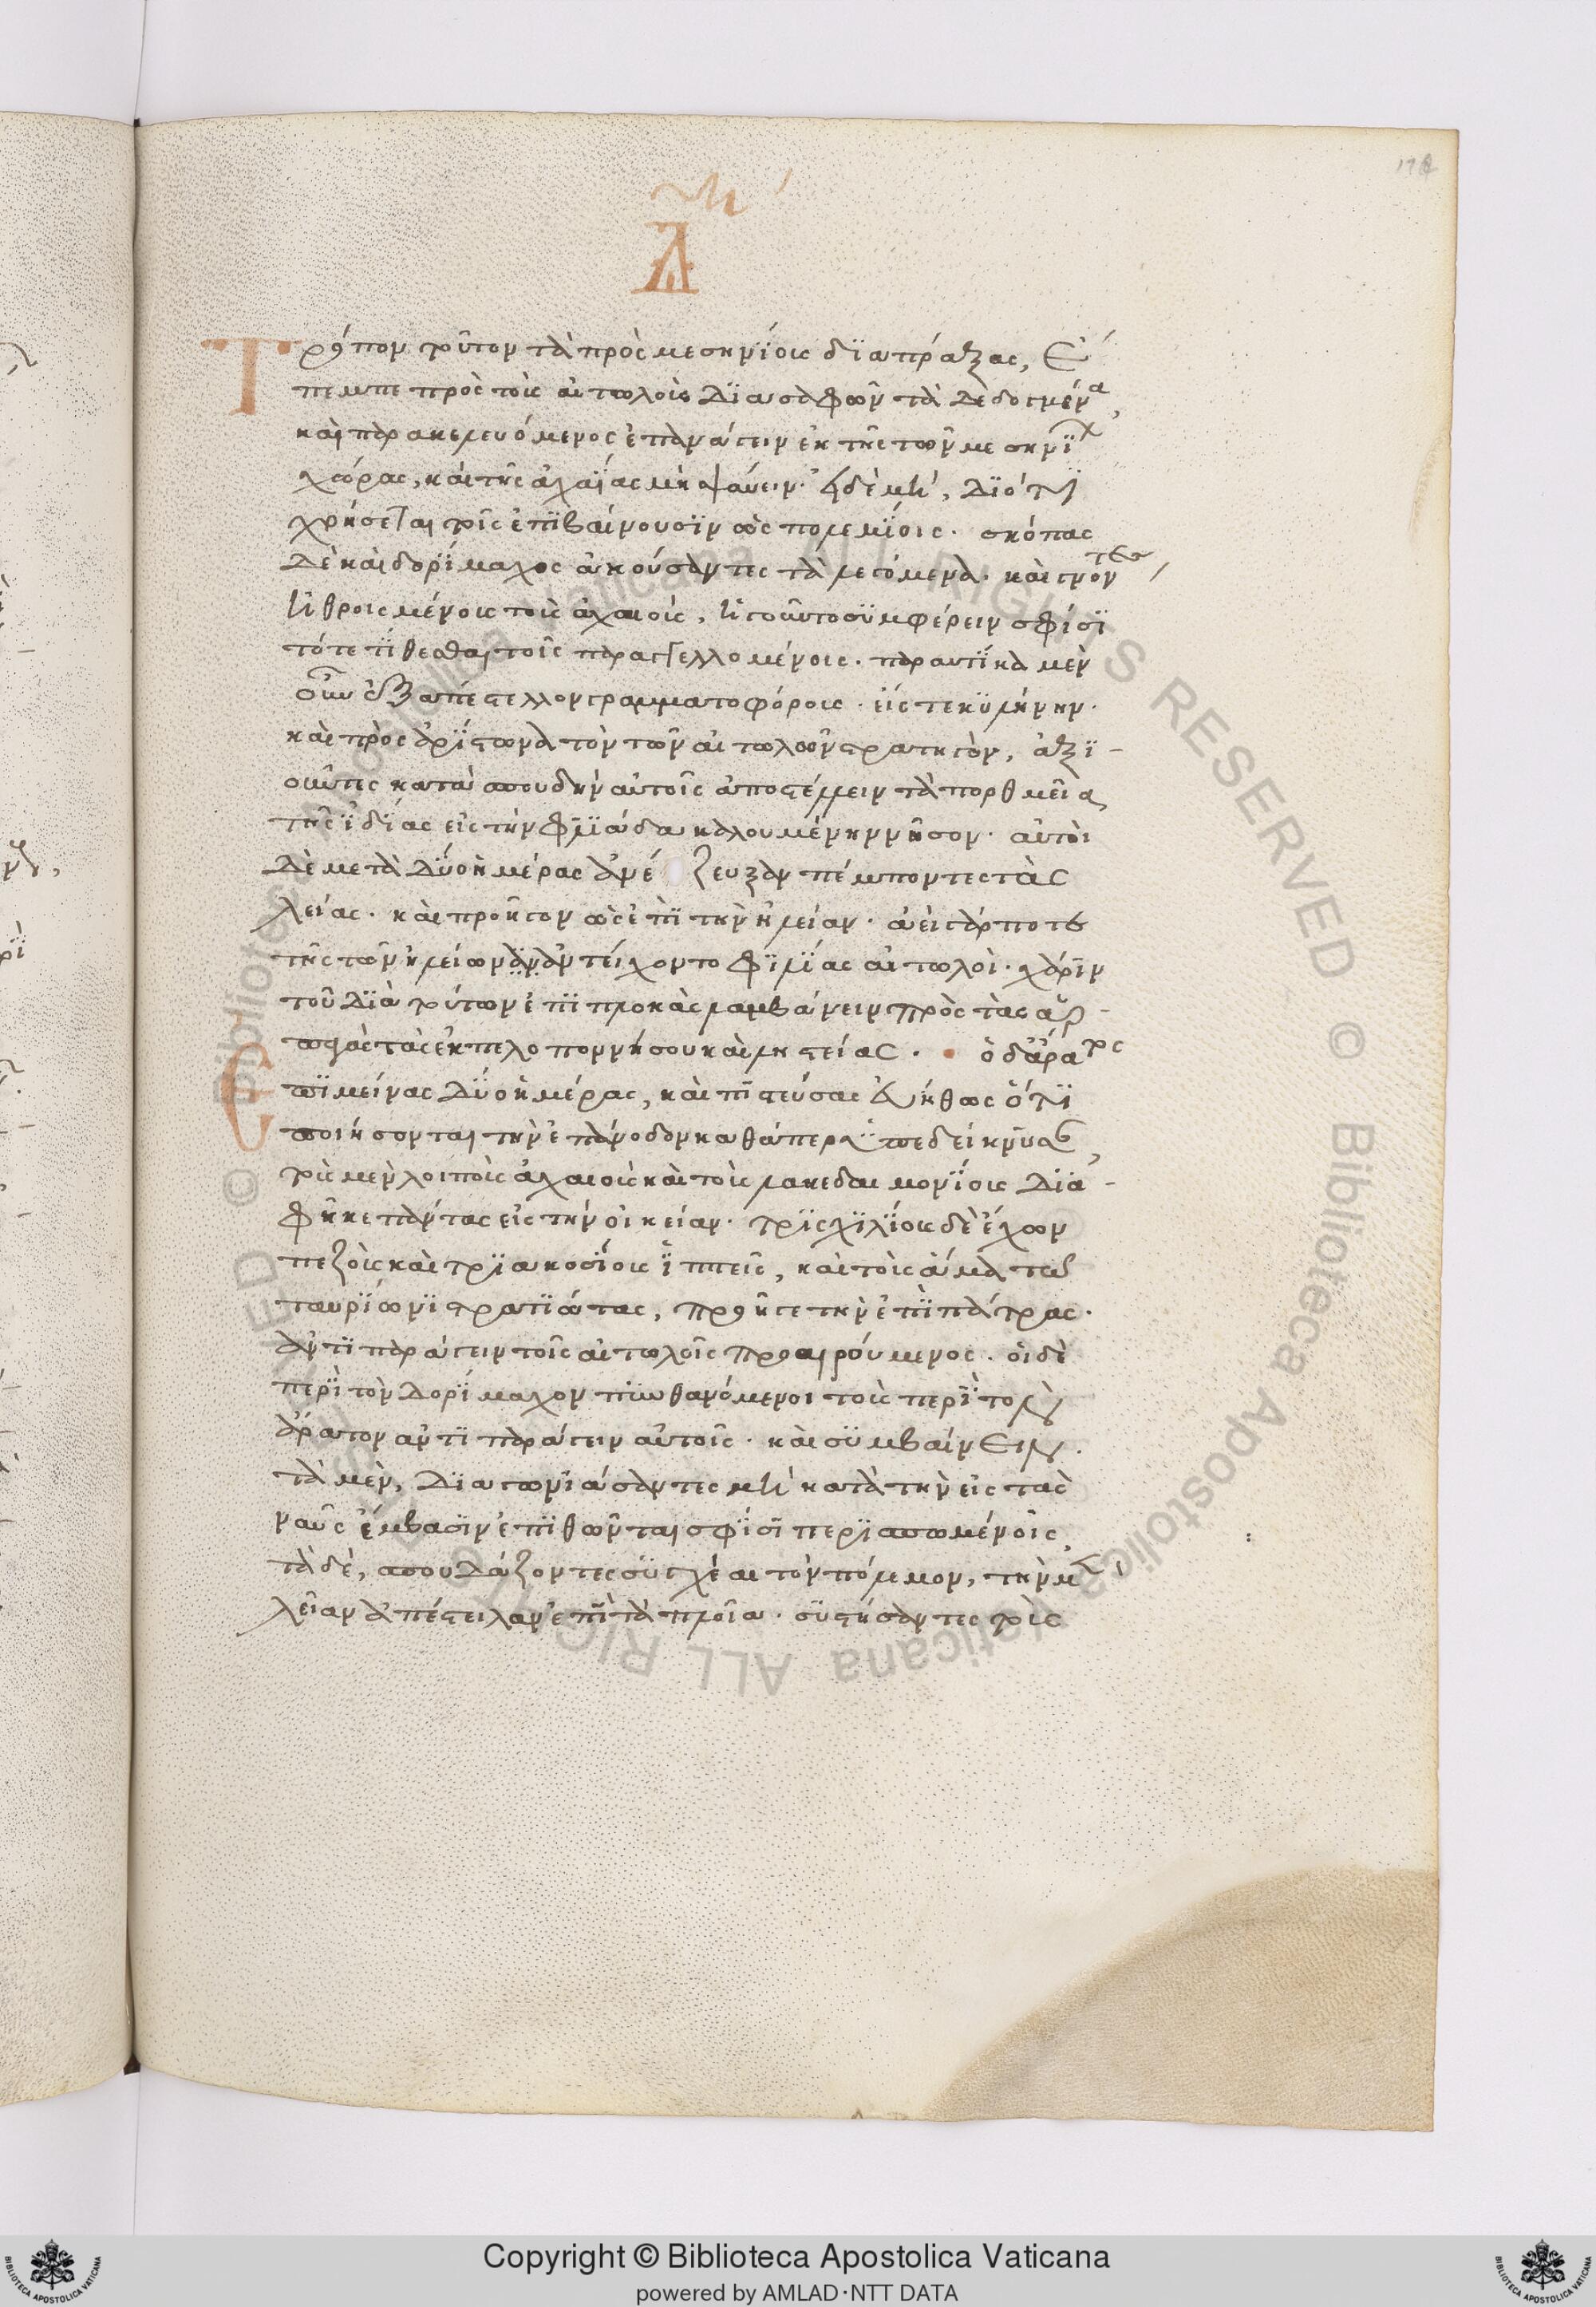 Τρόπον τοῦτον τὰ πρὸς μεσηνίοις διαπράξας, ἔ
πεμπε πρὸς τοὺς αἰτωλοὺς διασαφῶν τὰ δεδογμένα,
καὶ παρακελευόμενος ἐπανάγειν ἐκ τῆς τῶν μεσηνίων
χώρας, καὶ τῆς ἀχαΐας μὴ ψαύειν· εἰ δὲ μή, διότι
χρήσεται τοῖς ἐπιβαίνουσιν ὡς πολεμίοις. σκόπας
δὲ καὶ δορίμαχος ἀκούσαντες τὰ λεγόμενα. καὶ γνόντες
ἠθροισμένους τοὺς ἀχαιούς, ἡγοῦντο συμφέρειν σφίσι
τότε τίθεσθαι τοῖς παραγγελλομένοις. παραυτίκα μὲν
οὖν ἐξαπέστελλον γραμματοφόρους. εἴς τε κυλήνην.
καὶ πρὸς ἀρίστωνα τὸν τῶν αἰτωλῶν στρατηγὸν, ἀξι-
οῦντες κατὰ σπουδὴν αὐτοῖς ἀποστέλλειν τὰ πορθμεῖα
τῆς ἰδίας εἰς τὴν φλιάδα καλουμένην νῆσον· αὐτοὶ
δὲ μετὰ δύο ἡμέρας ἀνέζευξαν πέμποντες τὰς
λείας. καὶ προῆγον ὡς ἐπὶ τὴν ἠλείαν. ἀεὶ γάρ ποτε
τῆς τῶν ἠλείων ἀν ἀντείχοντο φιλίας αἰτωλοὶ. χάριν
τοῦ διὰ τούτων ἐπιπλοκὰς λαμβάνειν πρὸς τὰς ἁρ-
παγὰς τὰς ἐκ πελοποννήσου καὶ ληστείας. ὁ δ' ἄρατος
Ἐπιμείνας δύο ἡμέρας, καὶ πιστεύσας εὐήθως ὅτι
ποιήσονται τὴν ἐπάνοδον καθάπερ ὑπεδείκνυσαν,
τοὺς μὲν λοιποὺς ἀχαιοὺς καὶ τοὺς λακεδαιμονίους δια-
φῆκε πάντας εἰς τὴν οἰκείαν. τρισχιλίους δὲ ἔχων
πεζοὺς καὶ τριακοσίους ἱππεῖς, καὶ τοὺς ἅμα τῶ
ταυρίωνι στρατιώτας, προῆγε τὴν ἐπὶ πάτρας.
ἀντιπαράγειν τοῖς αἰτωλοῖς προαιρούμενος. οἱ δὲ
περὶ τὸν δορίμαχον πυνθανόμενοι τοὺς περὶ τὸν
ἄρατον ἀντιπαράγειν αὐτοῖς. καὶ συμβαίνειν.
τὰ μὲν, διαγωνιάσαντες μὴ κατὰ τὴν εἰς τὰς
ναῦς ἔμβασιν ἐπιθῶνται σφίσι περισπωμένοις,
τὰ δὲ, σπουδάζοντες συγχέαι τὸν πόλεμον, τὴν μὲν
λείαν ἀπέστειλαν ἐπὶ τὰ πλοῖα. συστήσαντες τοὺς